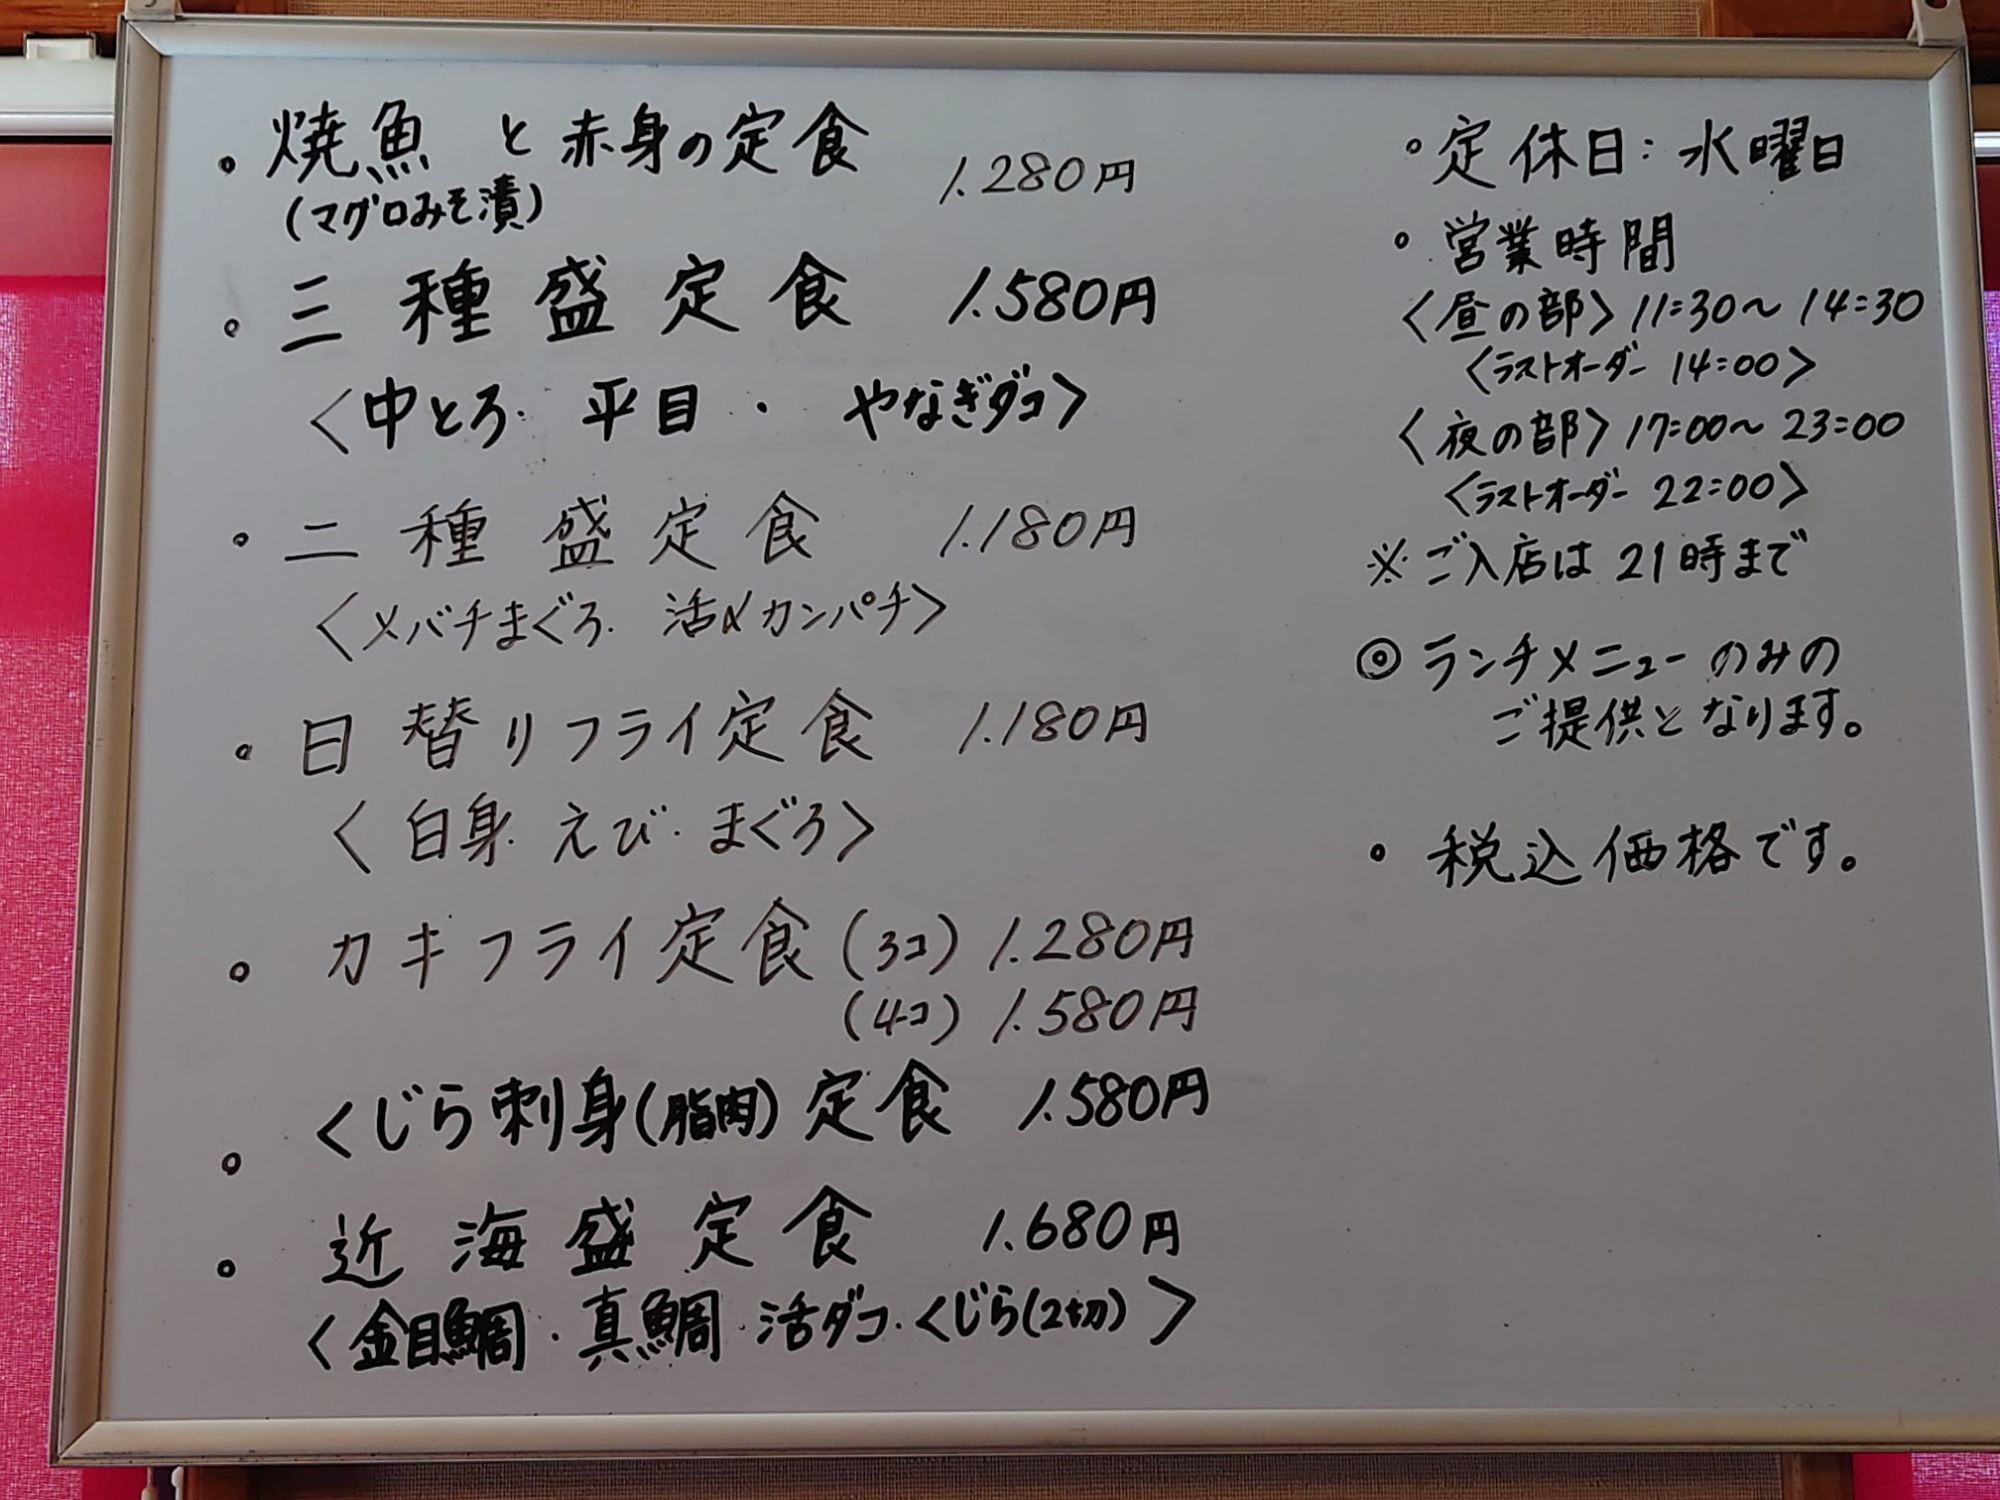 。焼魚と赤身の定食 1.280円
(マグロみそ漬)
。三種盛定食 1.580円
〈中とろ・平目・やなぎダコ〉
。二種盛定食 1.180円
〈メバチまぐろ・活〆カンパチ〉
。日替りフライ定食 1.180円
〈白身・えび・まぐろ〉
。カキフライ定食(3コ) 1.280円
(4コ) 1.580円
。くじら刺身(脂肉)定食 1.580円
。近海盛定食 1.680円
〈金目鯛・真鯛・活ダコ・くじら(2切)〉
。定休日:水曜日
。営業時間
〈昼の部〉11:30〜14:30
〈ラストオーダー 14:00〉
〈夜の部〉17:00〜23:00
〈ラストオーダー 22:00〉
※ご入店は21時まで
◎ランチメニューのみの
ご提供となります。
。税込価格です。